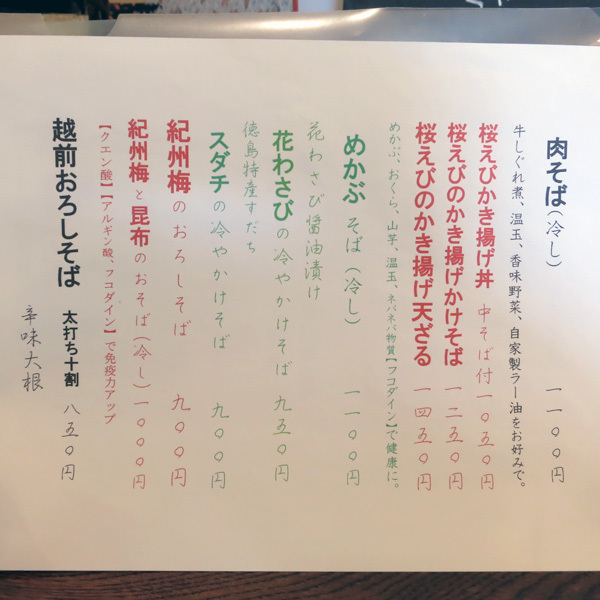 肉そば（冷し） 一一〇〇円
牛しぐれ煮、温玉、香味野菜、自家製ラー油をお好みで。
桜えびかき揚げ丼 中そば付 一〇五〇円
桜えびのかき揚げかけそば 一二五〇円
桜えびのかき揚げ天ざる 一四五〇円
めかぶ、おくら、山芋、温玉、ネバネバ物質【フコダイン】で健康に。
めかぶそば（冷し） 一一〇〇円
花わさび醤油漬け
花わさびの冷やかけそば 九五〇円
徳島特産すだち
スダチの冷やかけそば 九〇〇円
紀州梅のおろしそば 九〇〇円
紀州梅と昆布のおそば（冷し） 一〇〇〇円
【クエン酸】【アルギン酸、フコダイン】で免疫力アップ
越前おろしそば 太打ち十割 八五〇円
辛味大根